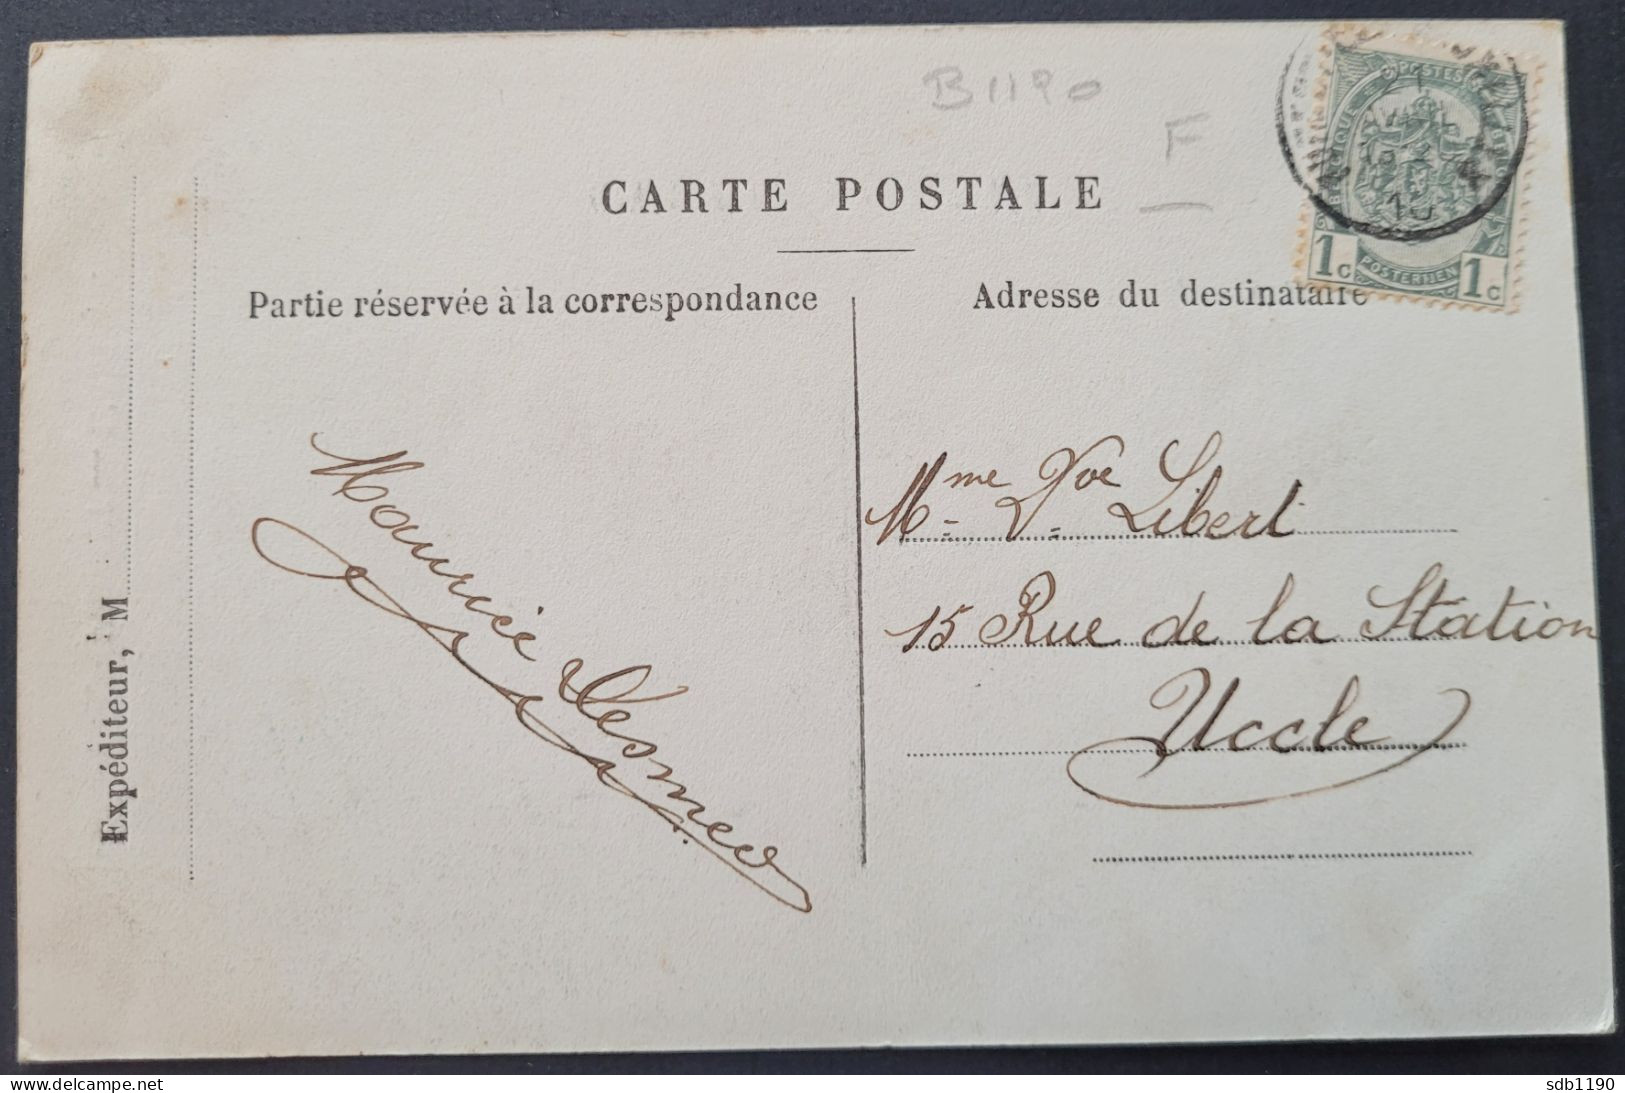 B1190
F
CARTE POSTALE
Partie réservée à la correspondance
Adresse du destinataire
BELGIQUE POSTES
21
10
1c POSTERIJEN 1c
Expéditeur, M
Maurice Desmed
Mme Vve Libert
15 Rue de la Station
Uccle
delcampe.net
sdb1190